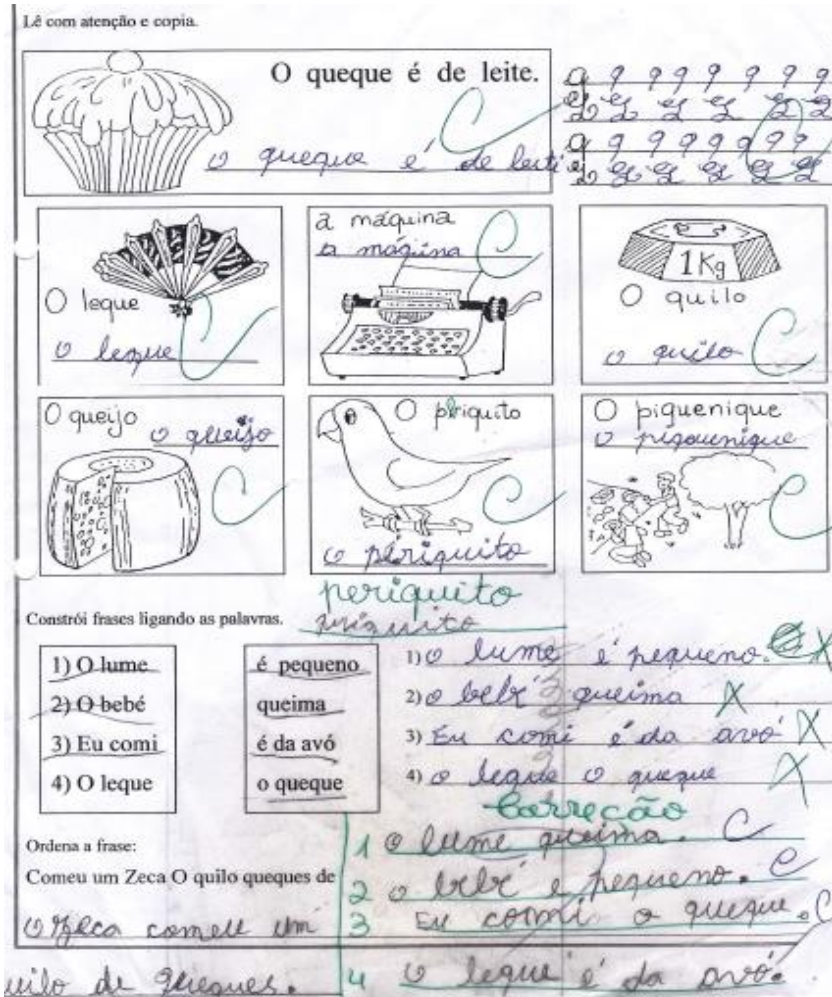 Lê com atenção e copia.
O queque é de leite.
o queque é de leite
q q q q q q q q
q q q q q q
q q q q q q q q
q q q q q q
O leque
o leque
a máquina
a máquina
1Kg
O quilo
o quilo
O queijo
o queijo
O periquito
o periquito
O piquenique
o piquenique
periquito
periquito
Constrói frases ligando as palavras.
1) O lume
2) O bebé
3) Eu comi
4) O leque
é pequeno
queima
é da avó
o queque
1) o lume é pequeno. C X
2) o bebé queima X
3) Eu comi é da avó X
4) o leque o queque X
Correção
1 o lume queima. C
2 o bebé é pequeno. C
3 Eu comi o queque. C
4 o leque é da avó.
Ordena a frase:
Comeu um Zeca O quilo queques de
o Zeca comeu um
uilo de queques.